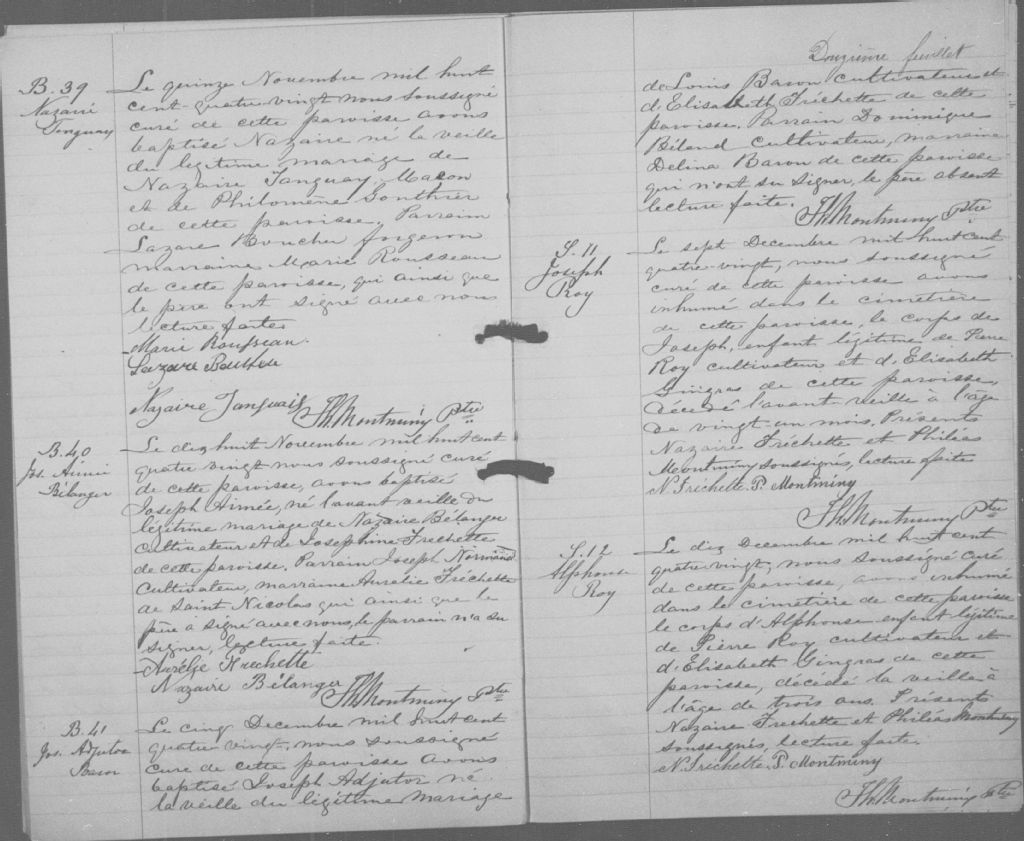 B. 39
Nazaire
Tanguay
Le quinze Novembre mil huit
cent-quatre vingt nous soussigné
curé de cette paroisse avons
baptisé Nazaire né la veille
du légitime mariage de
Nazaire Tanguay, Macon
et de Philomène Gonthier
de cette paroisse. Parrain
Lazare Boucher forgeron
marraine Marie Rousseau
de cette paroisse, qui ainsi que
le père ont signé avec nous
lecture faite
Marie Rousseau.
Lazare
Nazaire Tanguais Th. Montminy Ptre
B. 40
Jos. Aimée
Bélanger
Le dix huit Novembre mil huit cent
quatre vingt nous soussigné curé
de cette paroisse, avons baptisé
Joseph Aimée, né l'avant veille du
légitime mariage de Nazaire Bélanger
cultivateur et de Josephine Frechette
de cette paroisse. Parrain Joseph Normand
cultivateur, marraine Aurelie Fréchette
de Saint Nicolas qui ainsi que le
père a signé avec nous, le parrain n'a su
signer, lecture faite.
Aurélie Frechette
Nazaire Bélanger Th. Montminy Ptre
B. 41
Jos. Adjutor
Baron
Le cinq Decembre mil huit cent
quatre vingt, nous soussigné
curé de cette paroisse avons
baptisé Joseph Adjutor né
la veille du légitime mariage
Douzième feuillet
de Louis Baron cultivateur et
d'Elisabeth Fréchette de cette
paroisse. Parrain Dominique
Béland cultivateur, marraine
Delina Baron de cette paroisse
qui n'ont su signer, le père absent
lecture faite.
Th. Montminy Ptre
S. 11
Joseph
Roy
Le sept Decembre mil huit cent
quatre-vingt, nous soussigné
curé de cette paroisse avons
inhumé dans le cimetière
de cette paroisse, le corps de
Joseph, enfant légitime de Pierre
Roy cultivateur et d'Elisabeth
Gingras de cette paroisse,
décédé l'avant-veille à l'âge
de vingt-un mois. Présents
Nazaire Fréchette et Philéas
Montminy soussignés, lecture faite
N. Fréchette. P. Montminy
Th. Montminy Ptre
S. 12
Alphonse
Roy
Le dix Decembre mil huit cent
quatre vingt, nous soussigné curé
de cette paroisse, avons inhumé
dans le cimetière de cette paroisse
le corps d'Alphonse enfant légitime
de Pierre Roy cultivateur et
d'Elisabeth Gingras de cette
paroisse, décédé la veille à
l'âge de trois ans. Présents
Nazaire Fréchette et Philéas Montminy
soussignés, lecture faite.
N. Fréchette. P. Montminy
Th. Montminy Ptre